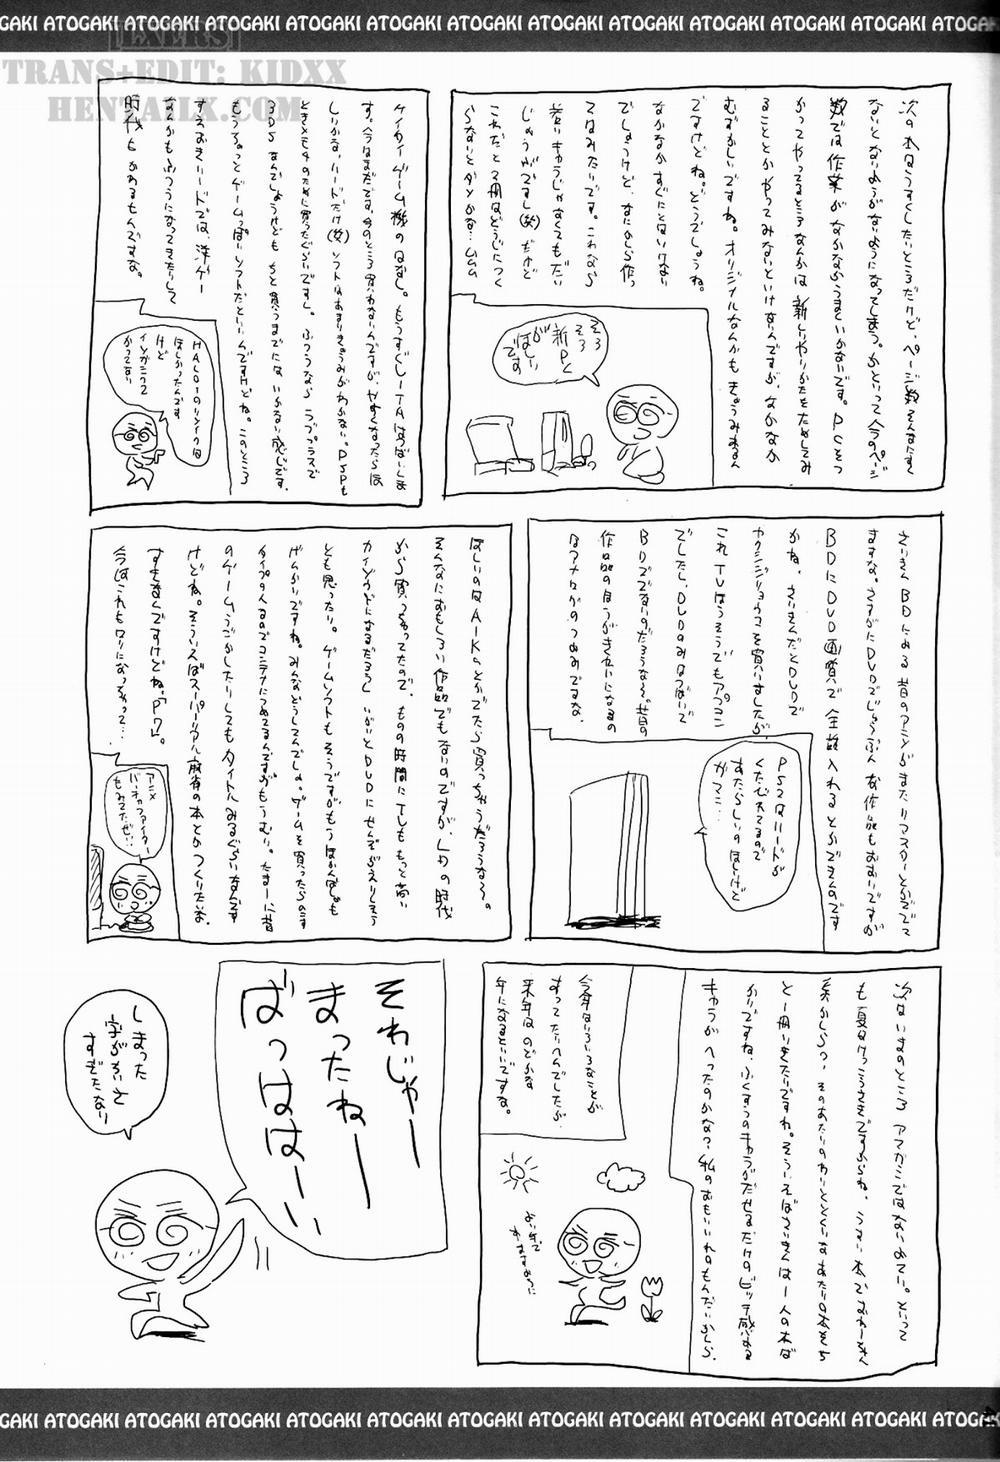 GAKI ATOGAKI ATOGAKI ATOGAKI ATOGAKI ATOGAKI ATOGAKI ATOGAKI ATOGAKI ATOGAKI ATOGAK
[EXERS]
TRANS+EDIT: KIDXX
HENTAILX.COM
次の本はうすくしたいところだけど、ページ数そんなにすく
ないとないようがないようになってしまう。かといって今のページ
数では作業がなかなかうまくいかないです。PCをつ
かってやってるところなんかは新しいやりかたをためしてみ
ることとかやってみないといけないんですが、なかなか
むずかしいですね。オリジナルなんかもきょうみあるん
ですけどね。どうでしょうね。
なかなかすぐにとはいけない
でしょうけど、なにかしら作っ
てはみたいです。これなら
若いキャラじゃなくてもだい
じょうぶですし(笑)だけど
これだと2冊はどうじにつく
らないとダメかな…ムムム
そろ
そろ
新PC
が
ほしい
です
ケイタイゲーム機のはなし。もうすぐVITAはつばいしま
す。今はまだです。今のところ買わないんですが、やすくなったらほ
しいかな、ハードだけ(笑)ソフトはあまりきょうみがわかない。PSPも
ときメモ4のために買ったぐらいですし。ふつうなら ラブプラスで
3DS なんでしょうけども ちと買うまでには いかない感じです。
もうちょっとゲームっぽいソフトだといいんですけどね。このところ
すえおきハードでは、洋ゲー
なんかもふつうになってきたりして
時代もかわるもんですな。
HALO1のリメイクは
ほしかったんです
けど
かってない
さいきんBDにある昔のアニメがまたリマスターとかででて
ますな。さすがにDVDでじゅうぶんな作品もおおいですが
BDにDVD画質で全話入れるとかできんのです
かね。さいきんだとDVDで
カクシジョウコを買いましたが
これTVはうそうでもアプコン
でしたし、DVDのみはつばいで
BDででないのだろうな〜。昔の
作品のほうがきれいになるの
はアナログのつよみですな。
PS2はハードが
くたびれてるので
あたらしいのほしけど
ガマン…
ほしいのはAIKのとかでたら買っちゃうだろうな〜。
そんなにおもしろい作品でもないのですが、LDの時代
から買っちゃってたので。ものの時間にしてももっと高い
カイゾウドになるだろうし いがいとDVDにせんでがえりしそう
とも思ったり。ゲームソフトもそうですがもうほかんばしょも
げんかいですね。みんなどうしてんでしょ。ゲームを買ったらのこす
タイプの人なのでコンテナにつめてるんですがもうむり。たま〜に昔
のゲームうごかしたりしてもタイトルみるぐらいなんです
けどね。そういえばスーパーリアル麻雀の本とかつくりたいな。
すきなんですけどね、「P7」。
今はこれもムリになっちゃって…
アニメ
バーチャファイター
もみてたぜい…
次はいまのところ アマガミではないよてい。といって
も夏はけっこうさきですからね、うすい本でおわーそれ
系かしらっ、そのあたりのわいととくいなあたりの本をち
と一冊いきたいですね。そういえばさいきんは一人の本ば
かりですね、ふくすうのキャラがだせるだけのピッチ感ある
キャラが へったのかな?私のおもいいれのもんだいかしら。
今年はいろいろなことが
すってたいへんでしたが
来年はのどかな
年になるといいですな。
よい年で
ありますように
それじゃー
まったねー
ばっははーい
しまった
字がかいと
すぎたなり
GAKI ATOGAKI ATOGAKI ATOGAKI ATOGAKI ATOGAKI ATOGAKI ATOGAKI ATOGAKI ATOGAKI ATOGAK